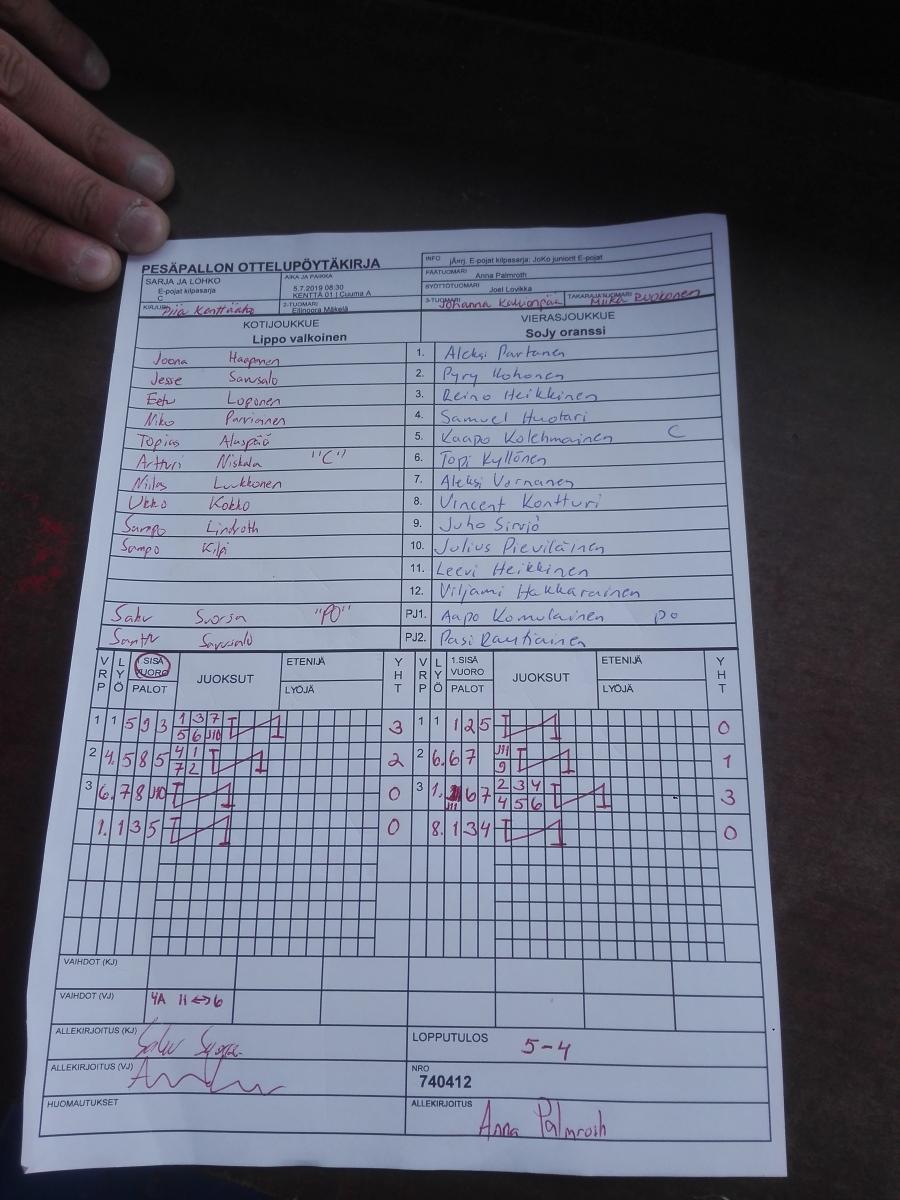 PESÄPALLON OTTELUPÖYTÄKIRJA
INFO jÄrrj. E-pojat kilpasarja: JoKo juniorit E-pojat
SARJA JA LOHKO
E-pojat kilpasarja
C
AIKA JA PAIKKA
5.7.2019 08:30
KENTTÄ 01 | Cuuma A
PÄÄTUOMARI Anna Palmroth
SYÖTTÖTUOMARI Joel Lovikka
KIRJURI Piia
2-TUOMARI Ellinoora Mäkelä
3-TUOMARI Johanna
TAKARAJATUOMARI Miika Ruokonen
KOTIJOUKKUE VIERASJOUKKUE
Lippo valkoinen SoJy oranssi
Joona Haaponen 1. Aleksi Partanen
Jesse Sarvsalo 2. Pyry Kohonen
Eetu Loponen 3. Reino Heikkinen
Niko Parviainen 4. Samuel Huotari
Topias Alaspää 5. Kaapo Kolehmainen C
Artturi Niskala "C" 6. Topi Kyllönen
Niilas Luukkonen 7. Aleksi Vornanen
Ukko Kokko 8. Vincent Kontturi
Sampo Lindroth 9. Juho Sirviö
Sampo Kilpi 10. Julius Pieviläinen
11. Leevi Heikkinen
12. Viljami Hakkarainen
Saku Svorsa "PO" PJ1. Aapo Komulainen po
Santtu PJ2. Pasi Rautiainen
VRP LYÖ 1.SISÄ VUORO PALOT JUOKSUT ETENIJÄ LYÖJÄ YHT VRP LYÖ 1.SISÄ VUORO PALOT JUOKSUT ETENIJÄ LYÖJÄ YHT
1 1 5 9 3 1 3 7 I 1 3 1 1 1 2 5 I 1 0
5 6 J10
2 4. 5 8 5 4 1 I 1 2 2 6. 6 7 J11 I 1 1
7 2 9
3 6. 7 8 J10 I 1 0 3 1. J11 6 7 2 3 4 I 1 3
4 5 6
1. 1 3 5 I 1 0 8. 1 3 4 I 1 0
VAIHDOT (KJ)
VAIHDOT (VJ) 4A 11 ↔ 6
ALLEKIRJOITUS (KJ)
LOPPUTULOS 5-4
ALLEKIRJOITUS (VJ)
NRO
740412
HUOMAUTUKSET
ALLEKIRJOITUS Anna Palmroth